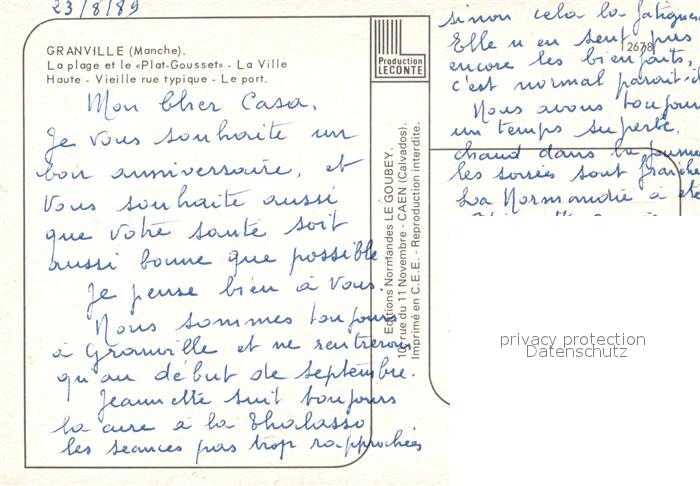 23/8/89
GRANVILLE (Manche).
La plage et le «Plat-Gousset» - La Ville
Haute - Vieille rue typique - Le port.
Production
LECONTE
Mon Cher Casa,
Je vous souhaite un
bon anniversaire, et
vous souhaite aussi
que votre santé soit
aussi bonne que possible
Je pense bien à vous.
Nous sommes toujours
à Granville et ne rentrerons
qu'au début de septembre.
Jeannette suit toujours
la cure à la Thalasso
les séances pas trop rapprochées
sinon cela la fatigue
Elle n'en sent pas
encore les bienfaits,
c'est normal parait-il
Nous avons toujours
un temps superbe,
chaud dans la journée
les soirées sont fraiches
La Normandie a été
2678
Editions Normandes LE GOUBEY.
rue du 11 Novembre - CAEN (Calvados).
Imprimé en C.E.E. - Reproduction interdite.
privacy protection
Datenschutz